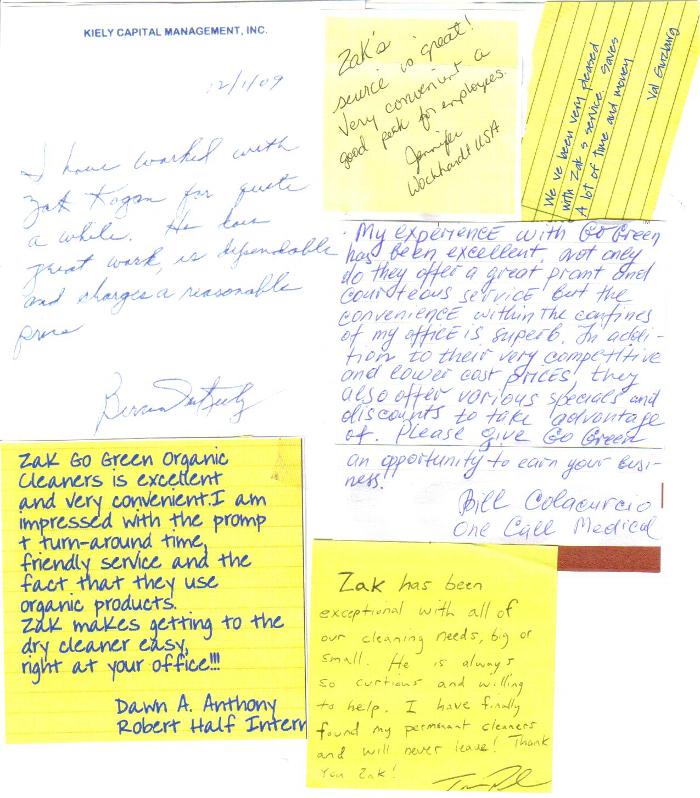 KIELY CAPITAL MANAGEMENT, INC.
12/1/09
I have worked with
Zak Kogan for quite
a while. He does
great work, is dependable
and charges a reasonable
price
Zak's
service is great!
Very convenient a
good perk for employees.
Jennifer
Wockhardt USA
We've been very pleased
with Zak's service. Saves
A lot of time and money
Val
My experience with Go Green
has been excellent, not only
do they offer a great promt and
courteous service but the
convenience within the confines
of my office is superb. In addi-
tion to their very competitive
and lower cost prices, they
also offer various specials and
discounts to take advantage
of. Please give Go Green
an opportunity to earn your busi-
ness.
Bill Colacurcio
One Call Medical
Zak Go Green Organic
Cleaners is excellent
and very convenient. I am
impressed with the promp
t turn-around time,
friendly service and the
fact that they use
organic products.
Zak makes getting to the
dry cleaner easy,
right at your office!!!
Dawn A. Anthony
Robert Half Intern
Zak has been
exceptional with all of
our cleaning needs, big or
small. He is always
so curtious and willing
to help. I have finally
found my permenant cleaners
and will never leave! Thank
You Zak!